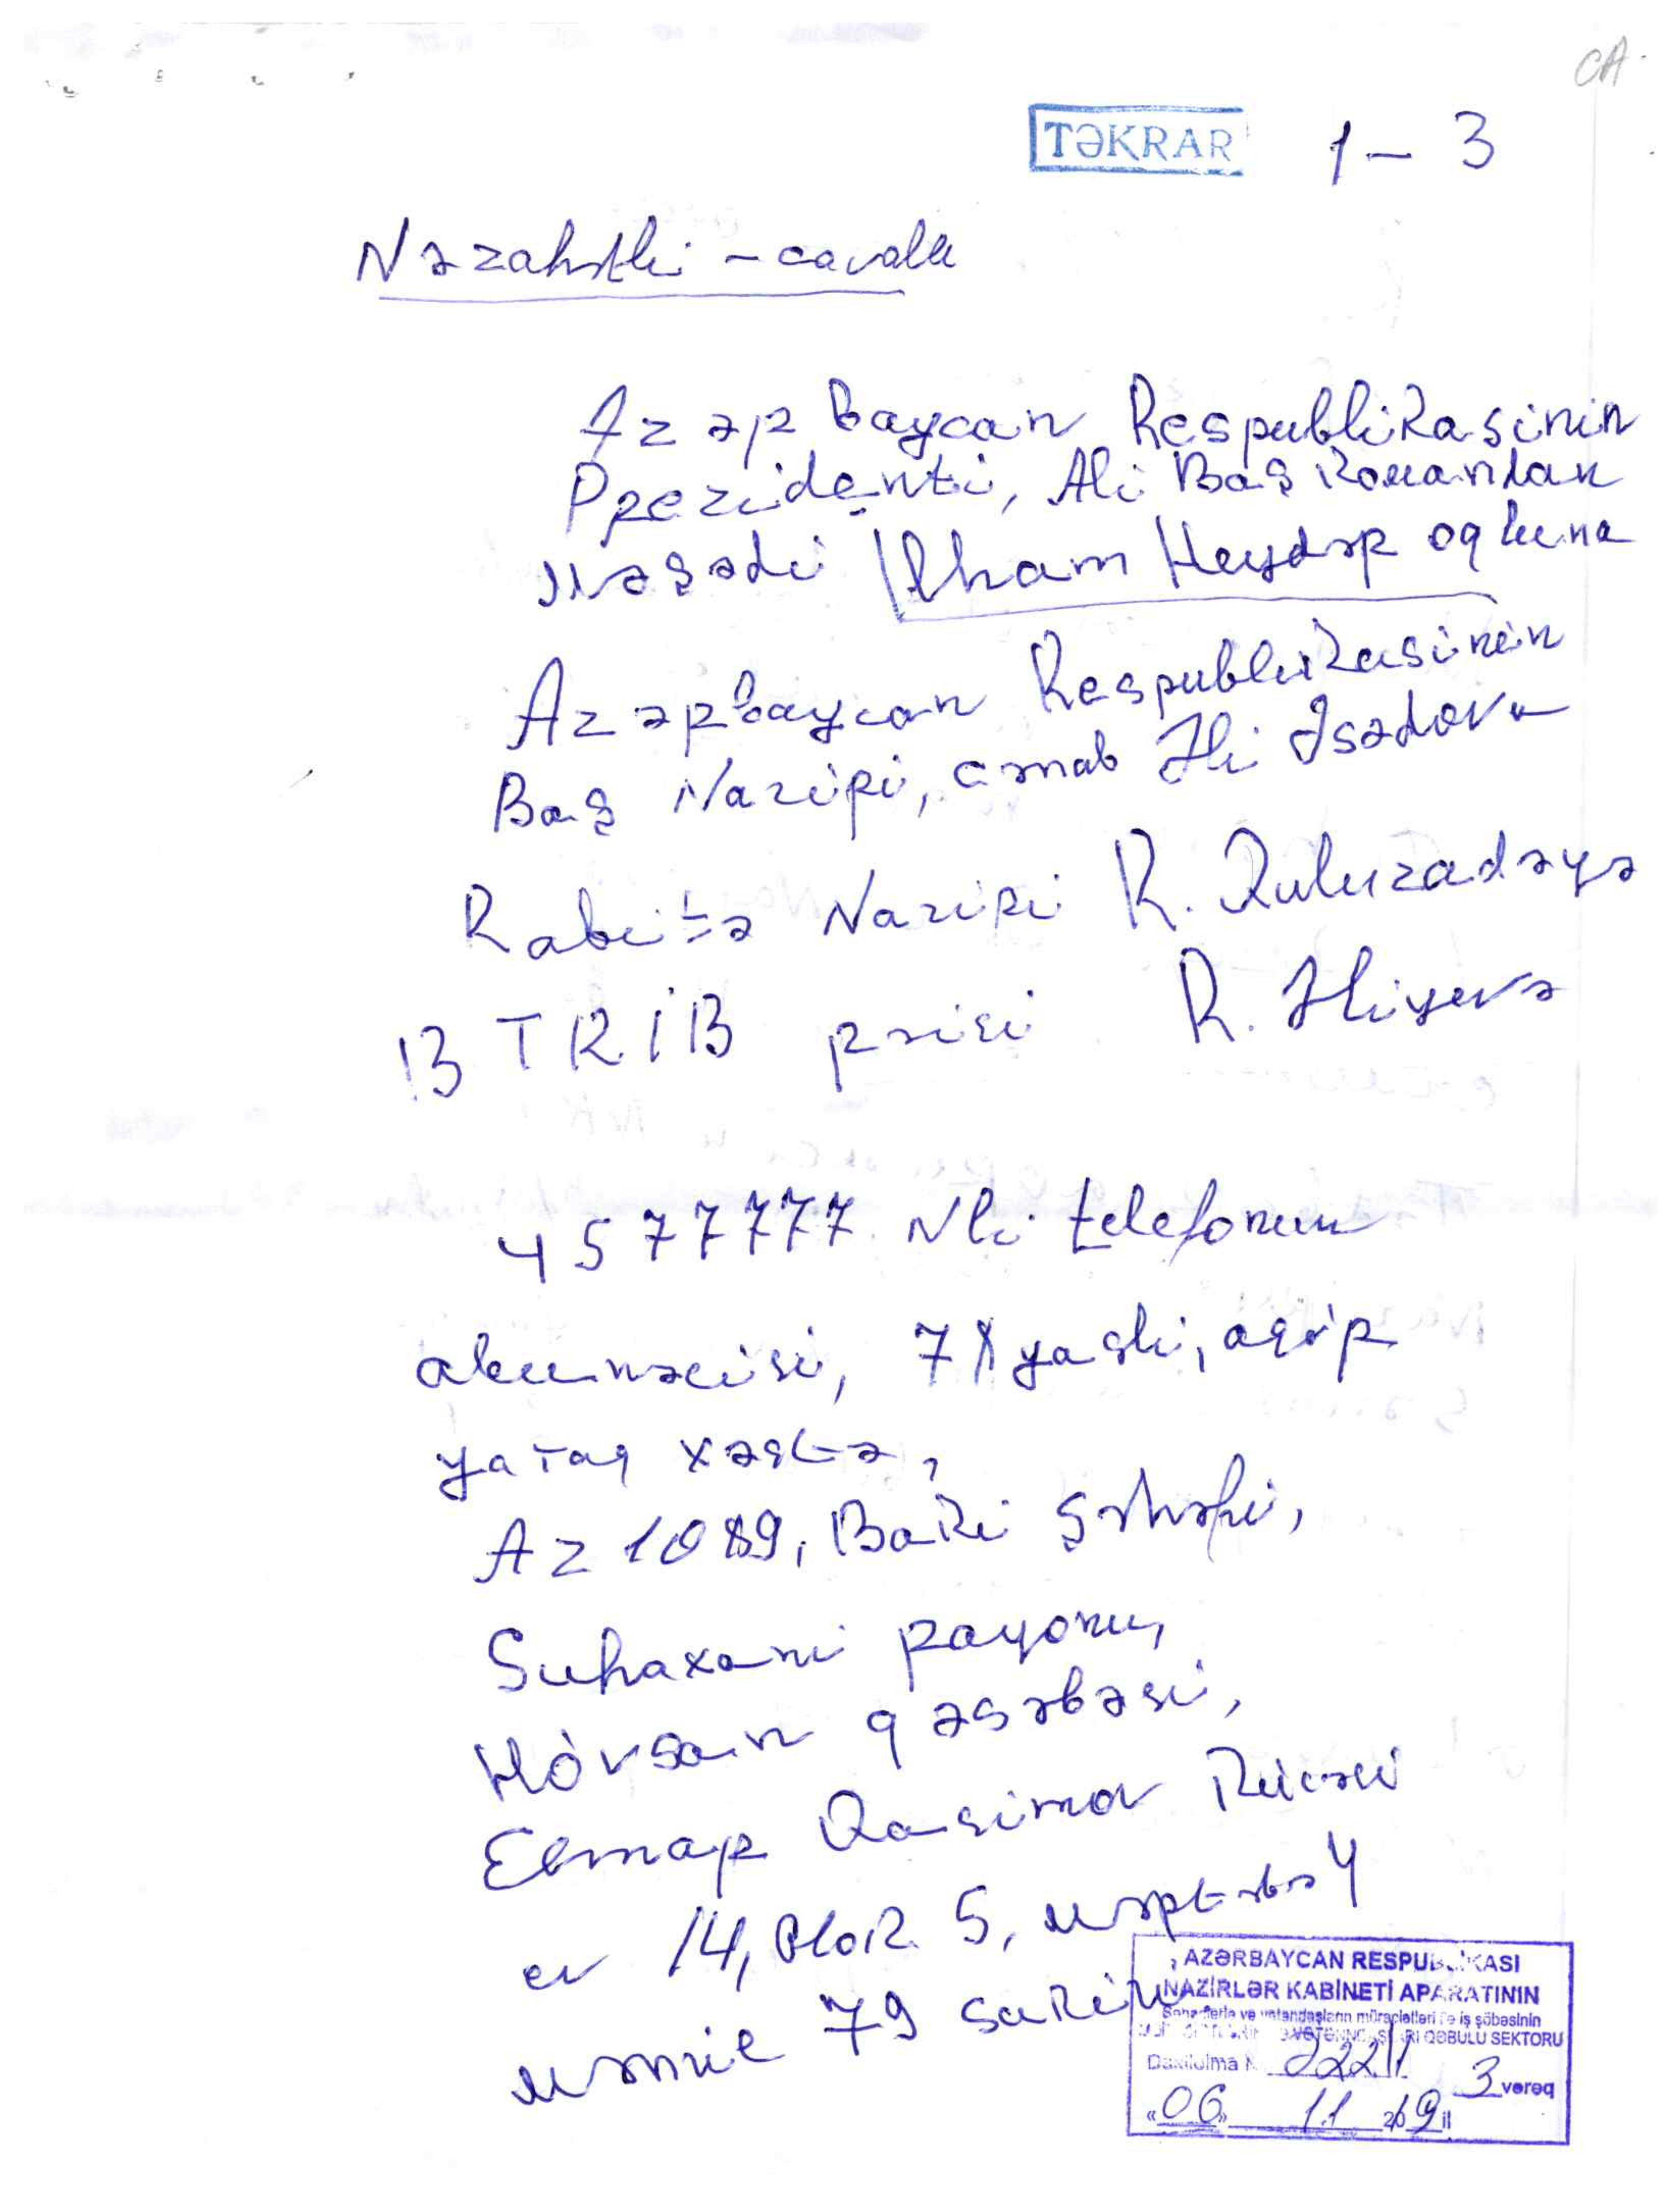 CA
TƏKRAR 1-3
Nəzarətli - cavabı
Azərbaycan Respublikasinin
Prezidenti, Ali Baş Komandan
Məşədi İlham Heydər oqluna
Azərbaycan Respublikasinin
Baş Naziri, cənab Əli Əsədova
Rabitə Naziri R. Quluzadəyə
BTRİB rəisi R. Əliyevə
4577777 Nli telefonun
abunəcisi, 7 yaşli, aqir
yataq xəstə,
Az 1089, Baki Şəhəri,
Suraxani rayonu,
Hövsan qəsəbəsi,
Elmar Qasimov Kücəsi
ev 14, blok 5, mərtəbə 4
mənzil 79 sakini
AZƏRBAYCAN RESPUBLİKASI
NAZİRLƏR KABİNETİ APARATININ
və vətəndaşların müraciətləri ilə iş şöbəsinin
QƏBULU SEKTORU
Daxilolma № 3 vərəq
«06» 11 2019 il